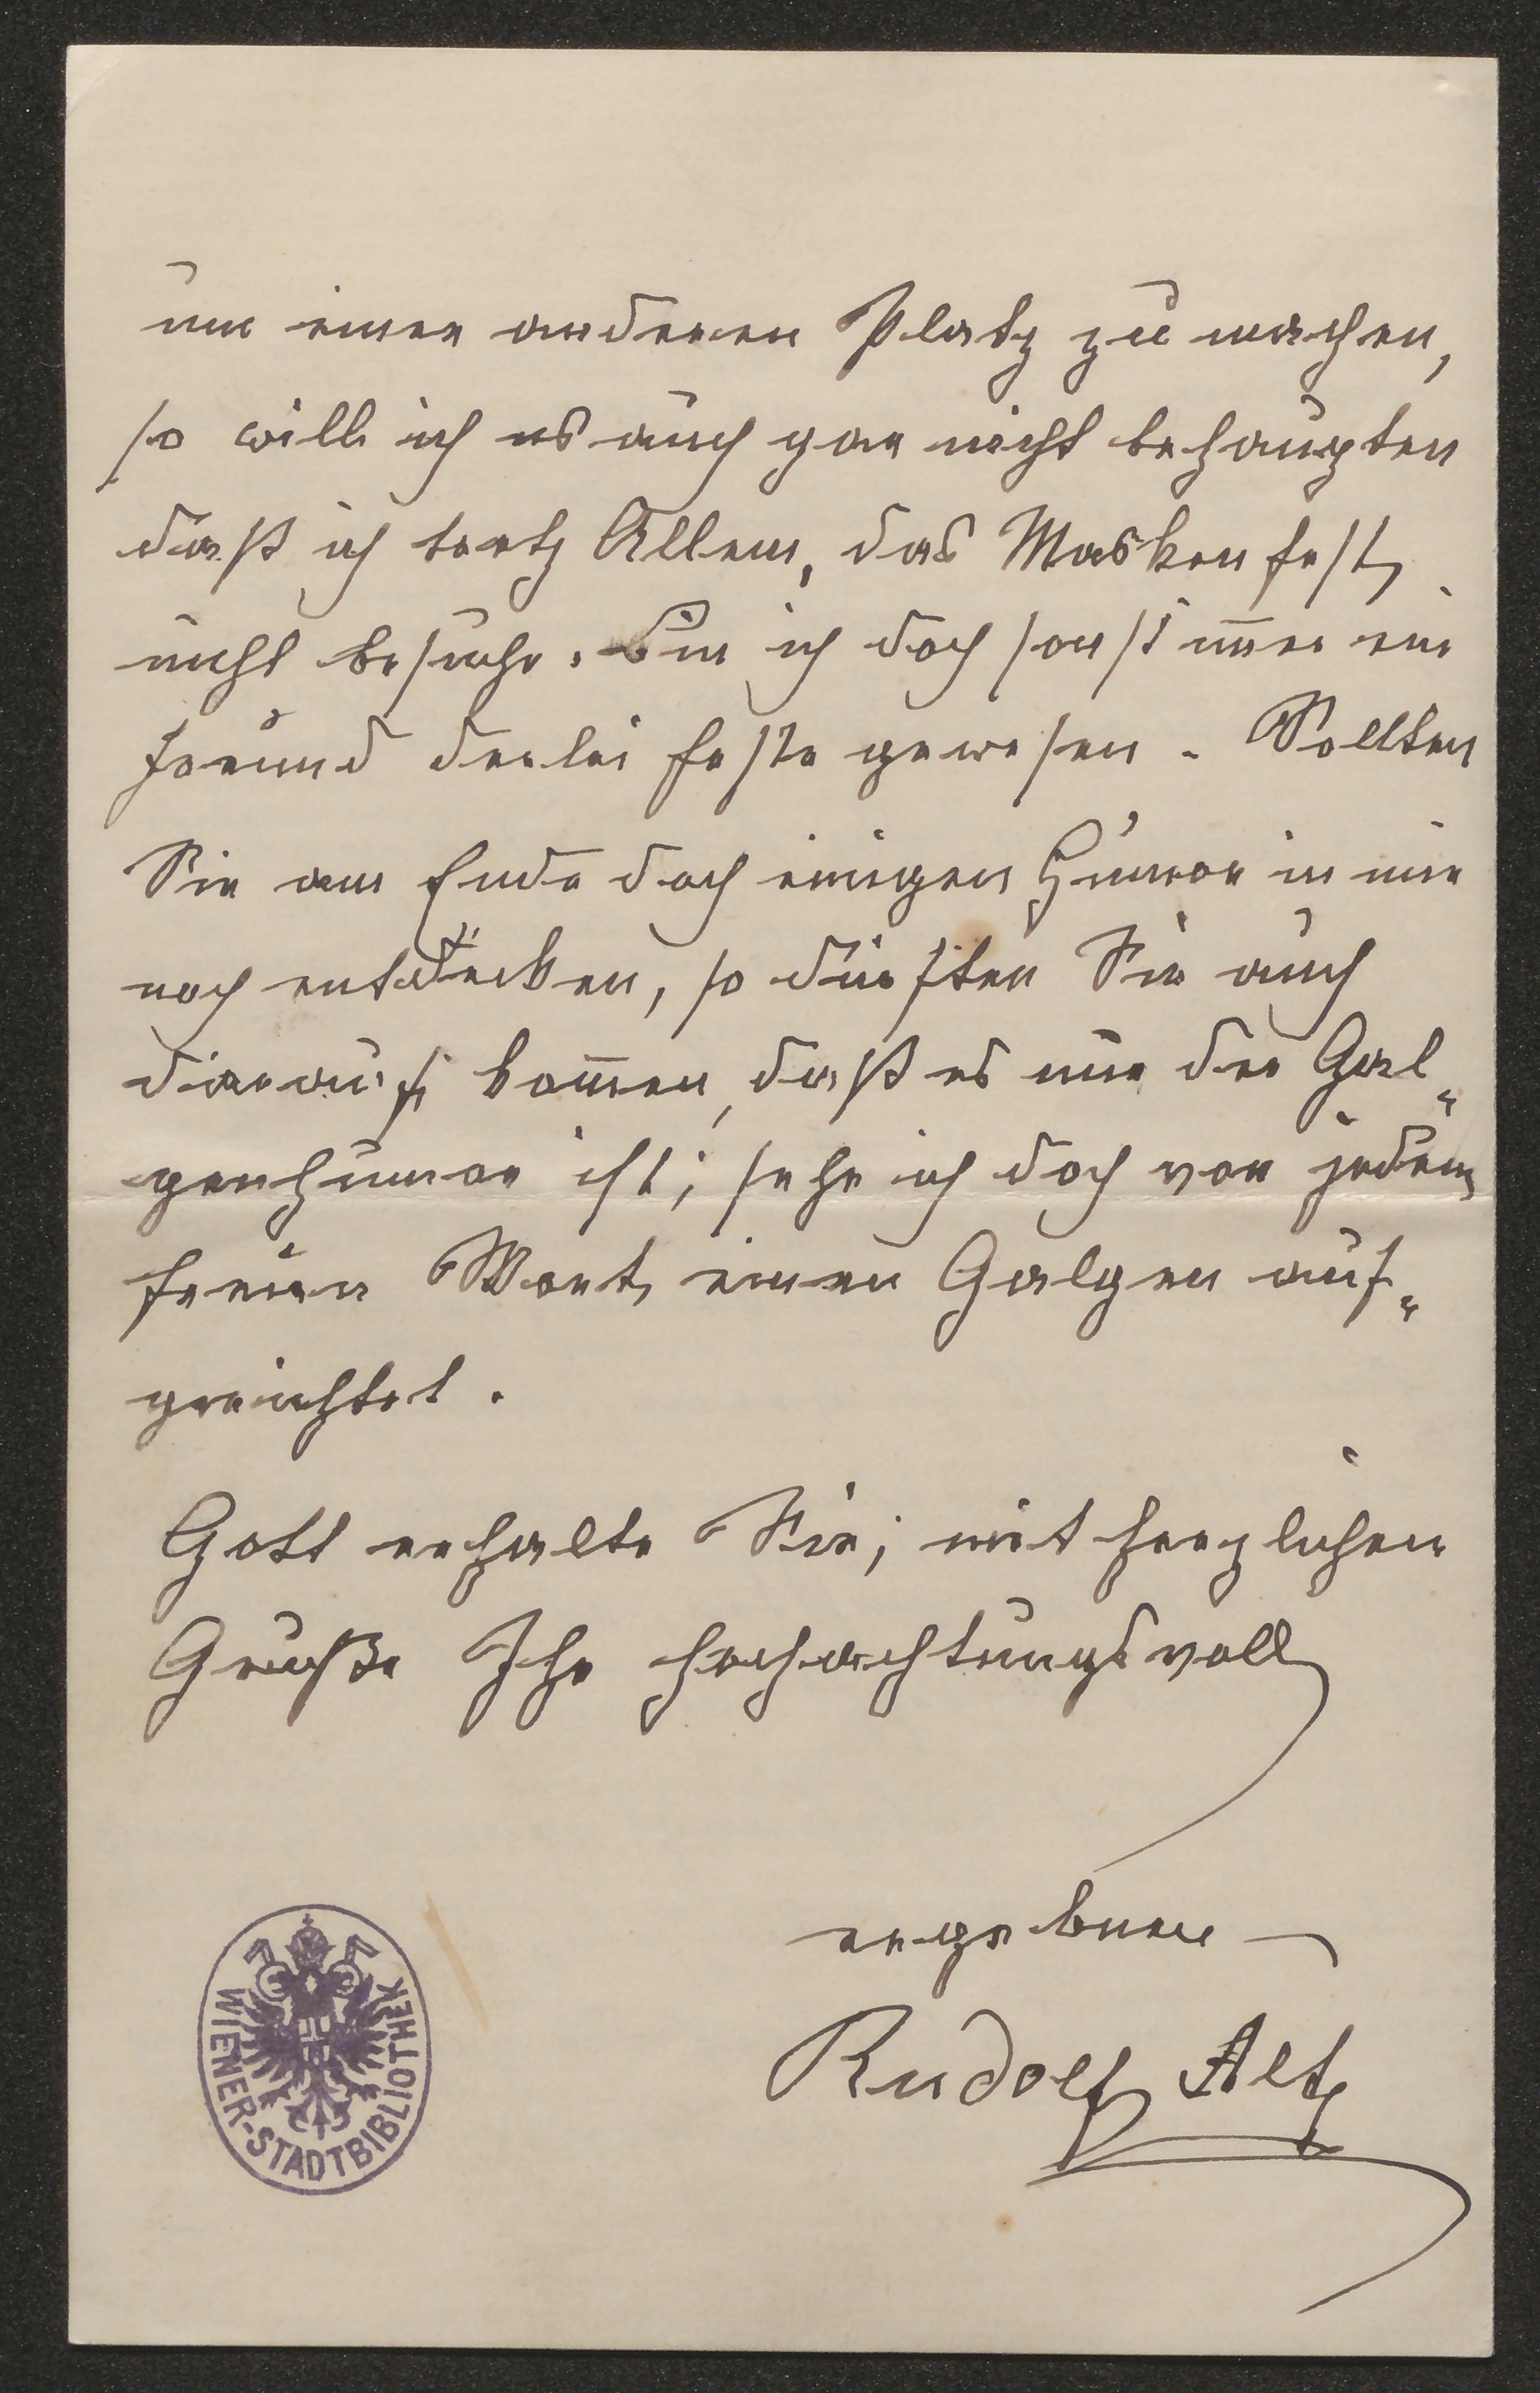 um einen anderen Platz zu machen,
so will ich es auch gar nicht behaupten
daß ich trotz Allem, das Maskenfest
nicht besuche. Bin ich doch sonst im̄er ein
Freund derlei Feste gewesen. Sollten
Sie am Ende doch einigen Humor in mir
noch entdecken, so dürften Sie auch
darauf kom̄en, daß es nur der Gal„
genhumor ist; sehe ich doch vor jedem
freien Wort einen Galgen auf„
gerichtet.
Gott erhalte Sie; mit herzlichen
Gruße Ihr hochachtungsvoll
ergebener
Rudolf Alt
WIENER-STADTBIBLIOTHEK